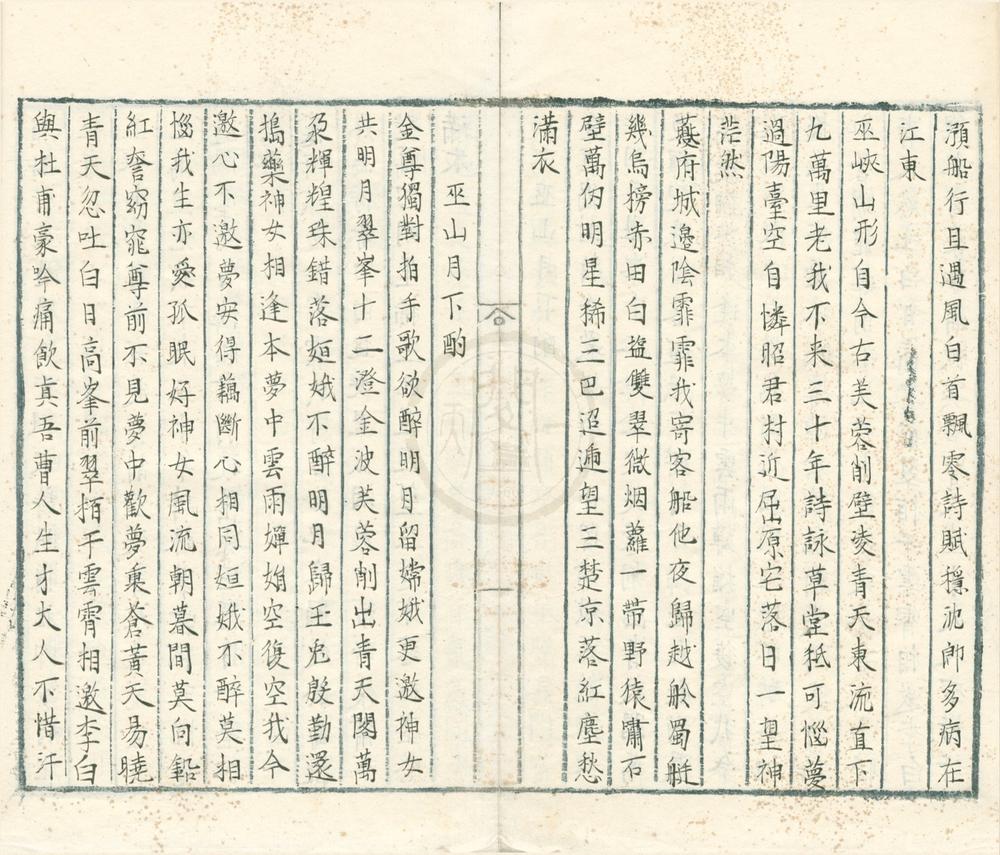 澦船行且遇風白首飄零詩賦穩沈帥多病在
江東
巫峽山形自今古芙蓉削壁凌青天東流直下
九萬里老我不来三十年詩詠草堂秪可惱夢
過陽臺空自憐昭君村近屈原宅落日一望神
茫然
夔府城邊陰霏霏我寄客船他夜歸越舲蜀艇
幾烏榜赤田白盐雙翠微烟蘿一帶野猿嘯石
壁萬仞明星稀三巴迢遞望三楚京落紅塵愁
滿衣
巫山月下酌
金尊獨對拍手歌欲醉明月留嫦娥更邀神女
共明月翠峯十二澄金波芙蓉削出青天闊萬
汞輝煌珠錯落姮娥不醉明月歸玉兔殷勤還
搗藥神女相逢本夢中雲雨嬋娟空復空我今
邀心不邀夢安得藕斷心相同姮娥不醉莫相
惱我生亦愛孤眠好神女風流朝暮間莫向鉛
紅誇窈窕尊前不見夢中歡夢裏蒼黃天易曉
青天忽吐白日高峯前翠栢干雲霄相邀李白
與杜甫豪吟痛飲真吾曹人生才大人不惜汗